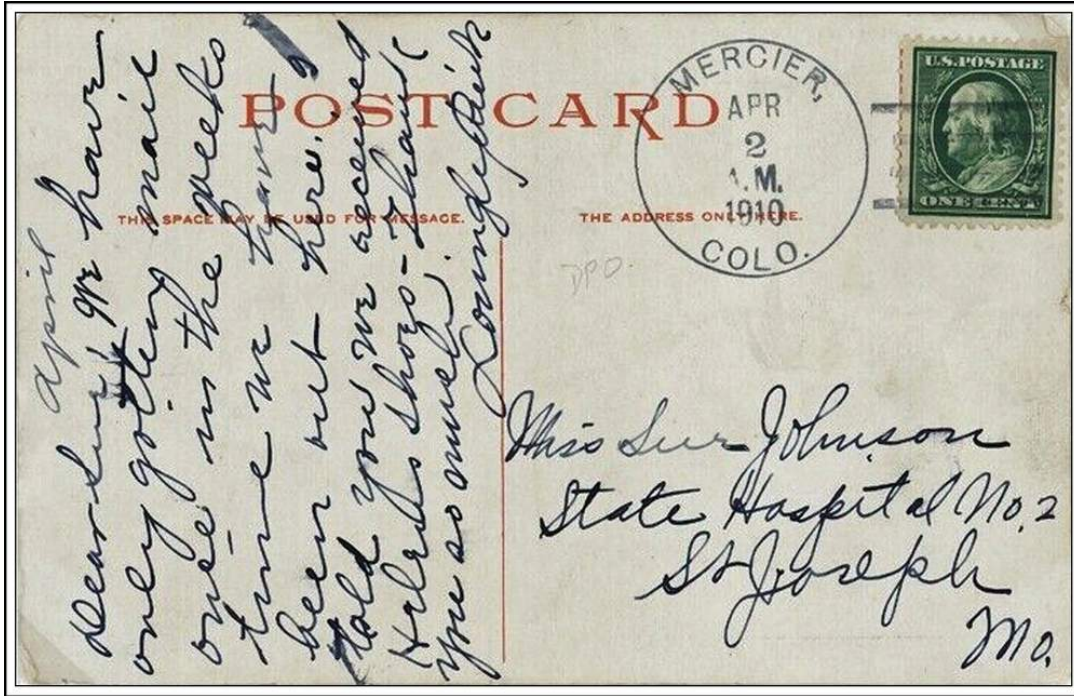 POST CARD
THIS SPACE MAY BE USED FOR MESSAGE.
THE ADDRESS ONLY HERE.
MERCIER,
APR
2
A.M.
1910
COLO.
U.S. POSTAGE
ONE CENT
DPO.
April
Dear Sue, We have
only gotten mail
once in the weeks
time we have
been out here. I
told you we received
Helen's shoes - thank
you so much. Lovingly
Miss Sue Johnson
State Hospital No. 2
St Joseph
Mo.